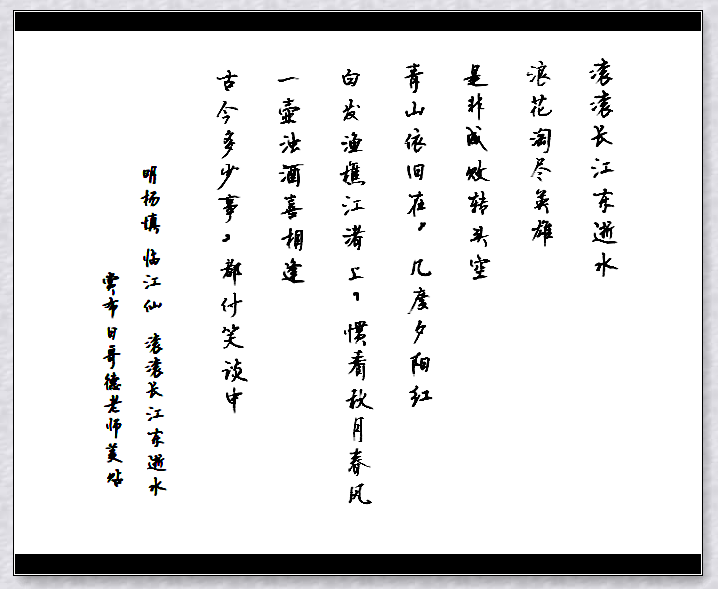 滚滚长江东逝水
浪花淘尽英雄
是非成败转头空
青山依旧在，几度夕阳红
白发渔樵江渚上，惯看秋月春风
一壶浊酒喜相逢
古今多少事，都付笑谈中
明杨慎 临江仙 滚滚长江东逝水
布日哥德老师美帖